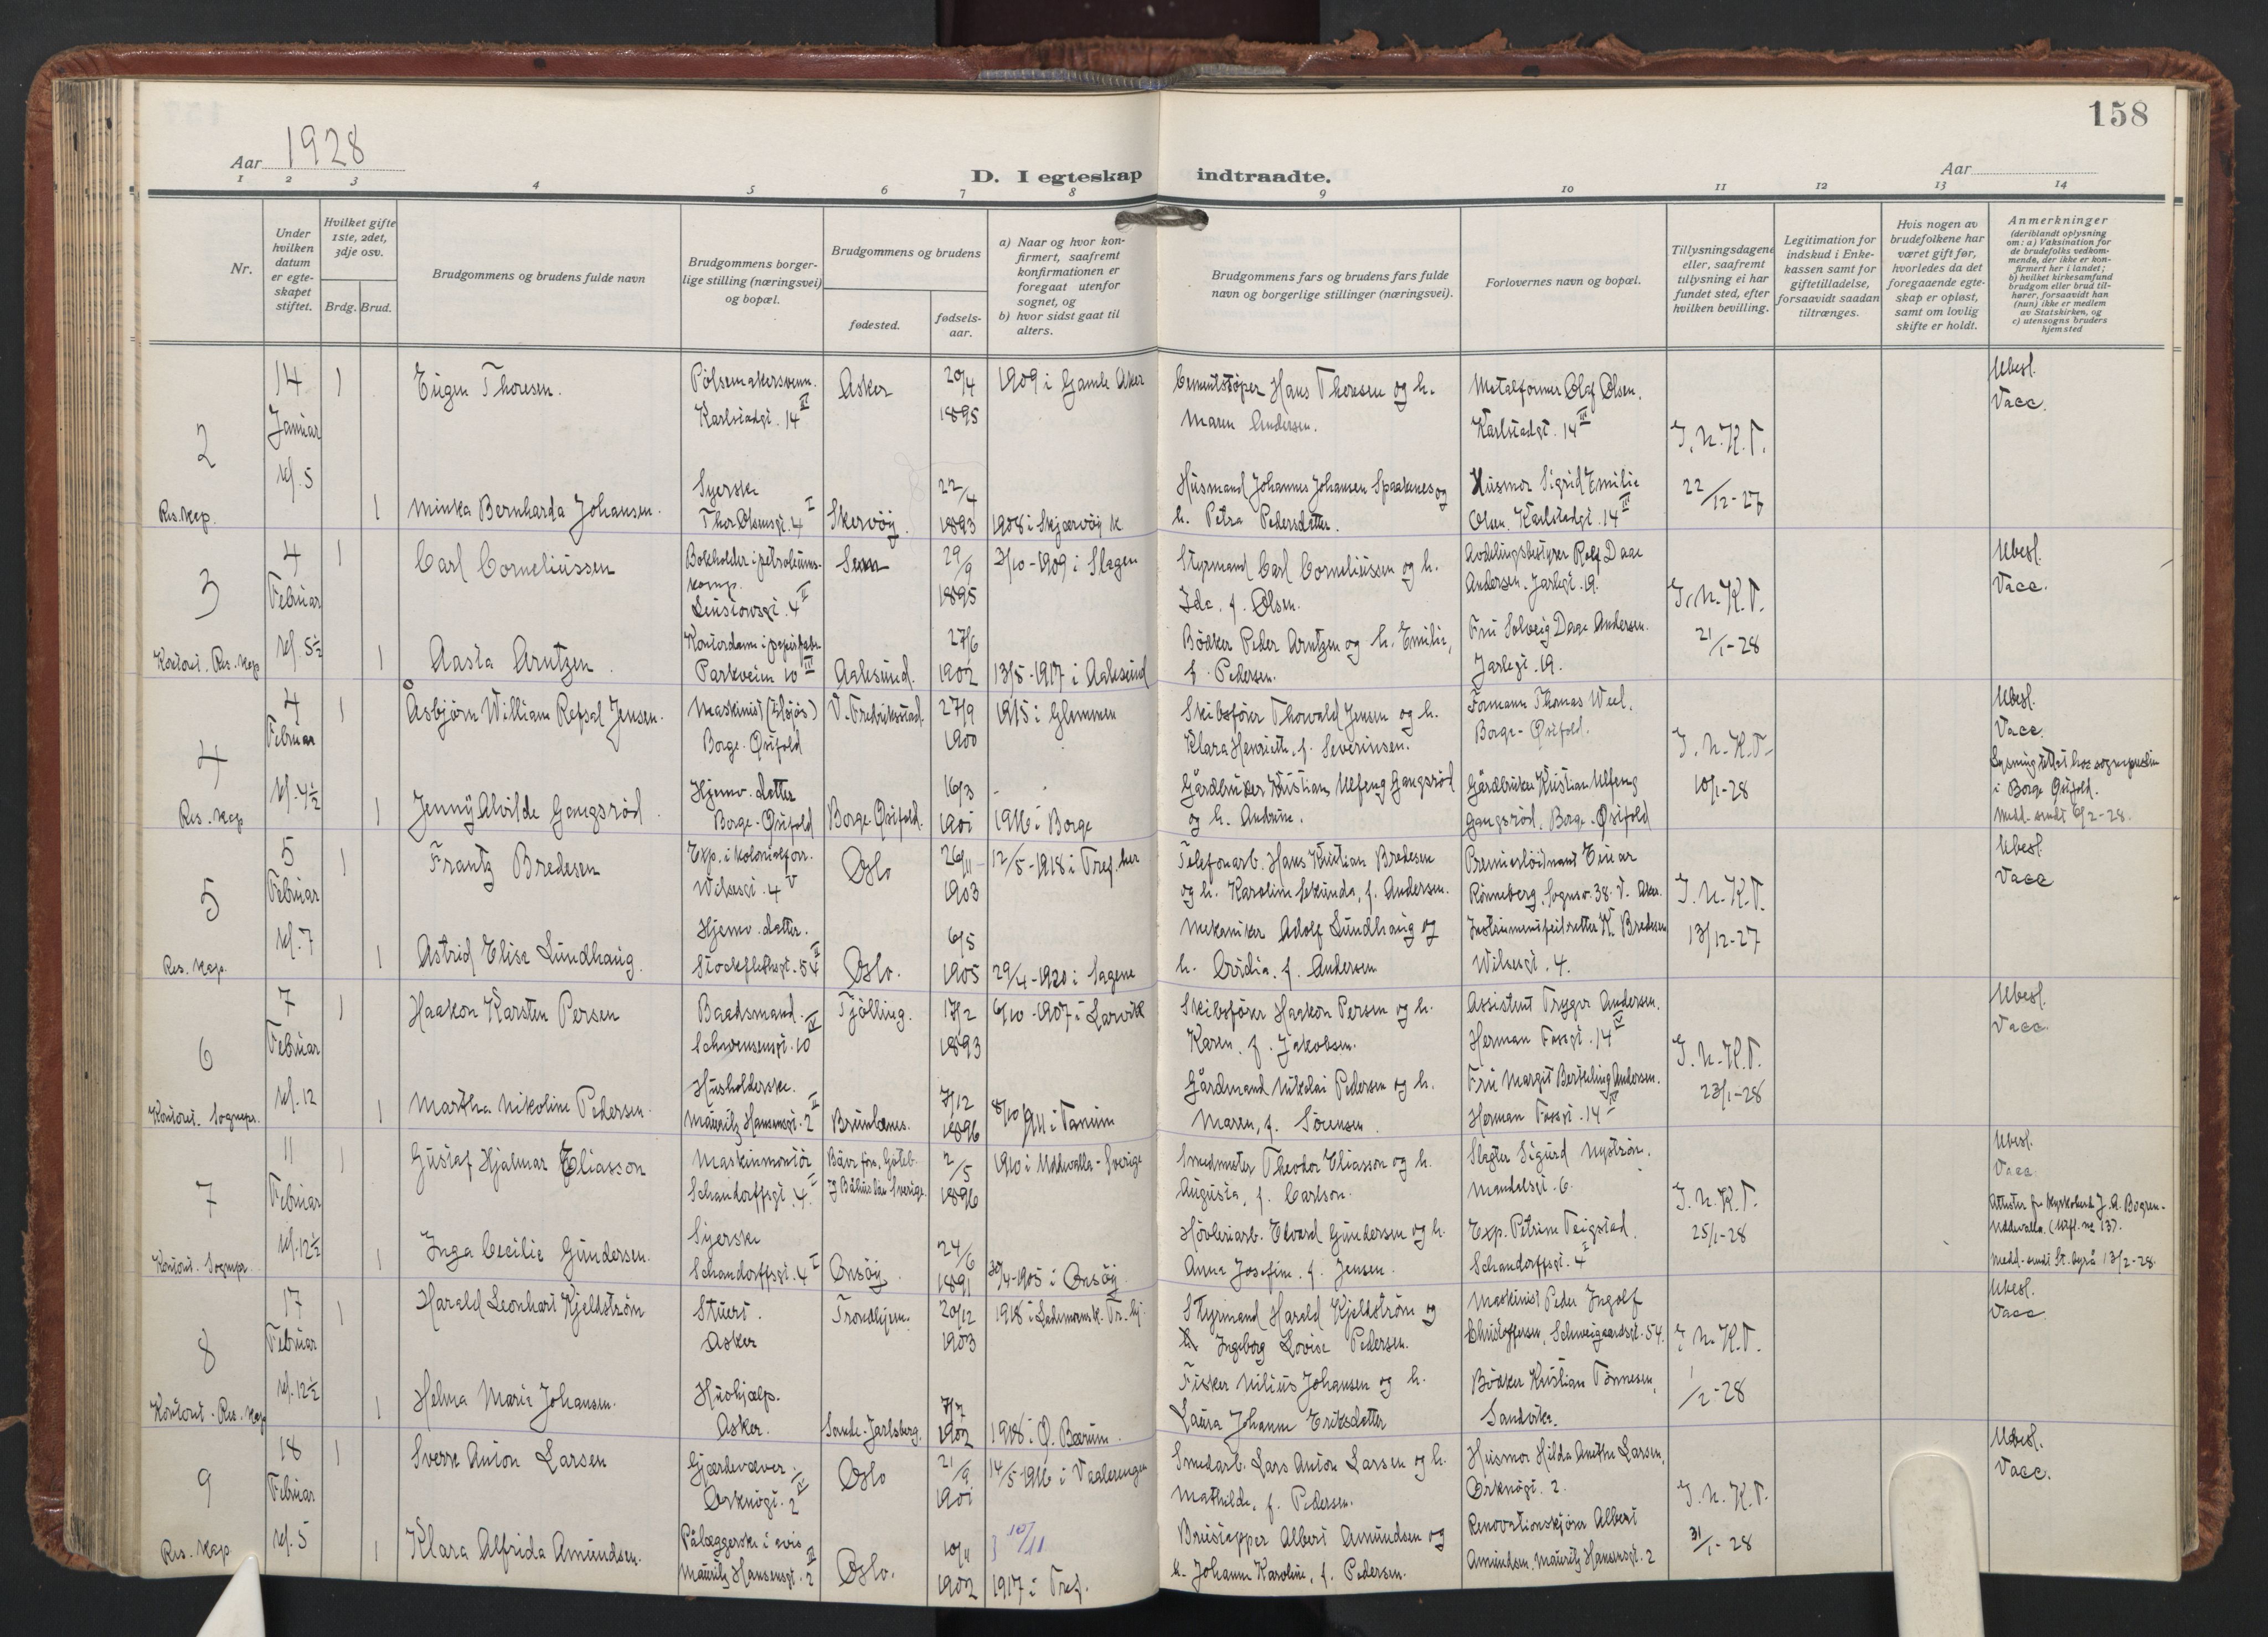 158
Aar 1928
D. I egteskap indtraadte.
Aar
1 2 3 4 5 6 7 8 9 10 11 12 13 14
Nr.
Under hvilken datum er egte-skapet stiftet.
Hvilket gifte 1ste, 2det, 3dje osv.
Brdg. Brud.
Brudgommens og brudens fulde navn
Brudgommens borger-lige stilling (næringsvei) og bopæl.
Brudgommens og brudens
fødested.
fødsels-aar.
a) Naar og hvor kon-firmert, saafremt konfirmationen er foregaat utenfor sognet, og
b) hvor sidst gaat til alters.
Brudgommens fars og brudens fars fulde navn og borgerlige stillinger (næringsvei).
Forlovernes navn og bopæl.
Tillysningsdagene eller, saafremt tillysning ei har fundet sted, efter hvilken bevilling.
Legitimation for indskud i Enke-kassen samt for giftetilladelse, forsaavidt saadan tiltrænges.
Hvis nogen av brudefolkene har været gift før, hvorledes da det foregaaende egte-skap er opløst, samt om lovlig skifte er holdt.
Anmerkninger (deriblandt oplysning om: a) Vaksination for de brudefolks vedkom-mende, der ikke er kon-firmert her i landet; b) hvilket kirkesamfund brudgom eller brud til-hører, forsaavidt han (hun) ikke er medlem av Statskirken, og c) utensogns bruders hjemsted
2
14 Januar kl. 5
Res. kap.
1 Eugen Thoresen. Pølsemakersvenn. Karlstadgt. 14 III Asker 20/4 1895 1909 i Gamle Aker
Cementstøper Hans Thoresen og h. Maren Andersen.
Metalformer Olaf Olsen. Karlstadgt. 14 III
1 Minka Bernharda Johansen. Syerske Thor Olsensgt. 4 I Skervøy 22/4 1893 1908 i Skjærvøy k.
Husmand Johannes Johansen Spaaknes og h. Petra Pedersdatter.
Husmor Sigrid Emilie Olsen. Karlstadgt. 14 III
T. N. K. T. 22/12-27
Ubesl. Vacc.
3
4 Februar kl. 5½
Kontoret. Res. kap
1 Carl Corneliussen Bokholder i petroleums-komp. Leustovsgt. 4 II Sem 29/9 1895 3/10-1909 i Slagen
Styrmand Carl Corneliussen og h. Ida, f. Olsen.
Avdelingsbestyrer Rolf Daae Andersen. Jarlegt. 19.
1 Aasta Arntzen. Kontordame i papirfabr. Parkveien 10 III Aalesund. 27/6 1902 13/5-1917 i Aalesund
Bødker Peder Arntzen og h. Emilie, f. Pedersen.
Fru Solveig Daae Andersen. Jarlegt. 19.
T. N. K. T. 21/1-28
Ubesl. Vacc.
4
4 Februar kl. 4½
Res. kap
1 Åsbjørn William Refsal Jensen. Maskinist (tilsjøs) Borge. Østfold V. Fredrikstad. 27/9 1900 1915 i Glemmen
Skibsfører Thorvald Jensen og h. Klara Henriette, f. Severinsen.
Formann Thomas Weel. Borge-Østfold.
1 Jenny Alvilde Gangsrød. Hjemv. datter Borge-Østfold Borge-Østfold. 16/3 1901 1916 i Borge
Gårdbruker Kristian Ulfeng Gangsrød og h. Andrine.
Gårdbruker Kristian Ulfeng Gangsrød. Borge. Østfold
T. N. K. T. 10/1-28
Ubesl. Vacc.
Lysning tatt hos sognepresten i Borge Østfold.
Medd. sendt 6/2-28.
5
5 Februar kl. 7
Res. kap.
1 Frantz Bredesen Exp. i kolonialforr. Wilsesgt. 4 V Oslo 26/11 1903 12/5-1918 i Tref. her
Telefonarb. Hans Kristian Bredesen og h. Karoline Sekunda, f. Andersen.
Premierløitnant Einar Rønneberg, Sognsv. 38. V. Aker.
1 Astrid Elise Lundhaug. Hjemv. datter. Stockflethsgt. 54 II Oslo. 6/5 1905 29/4-1920 i Sagene
Mekaniker Adolf Lundhaug og h. Ovidia, f. Andersen
Instrumentfeilretter K. Bredesen Wilsesgt. 4.
T. N. K. T. 13/12-27
Ubesl. Vacc
6
7 Februar kl. 12
Kontoret. Sognepr.
1 Haakon Karsten Persen Baadsmand. Schwensensgt. 10 IV Tjølling. 17/2 1893 6/10-1907 i Larvik
Skibsfører Haakon Persen og h. Karen, f. Jakobsen.
Assistent Trygve Andersen. Herman Fossgt. 14 IV
1 Martha Nikoline Pedersen. Husholderske. Mauritz Hansensgt. 2 II Brunlanes. 7/12 1896 8/10 1911 i Tanum
Gårdmand Nikolai Pedersen og h. Maren, f. Sörensen.
Fru Margit Berthling Andersen. Herman Fossgt. 14 IV
T. N. K. T. 23/1-28
Ubesl. Vacc.
7
11 Februar kl. 12½
Kontoret. Sognepr.
1 Gustaf Hjalmar Eliasson Maskinmontør Schandorffsgt. 4 I Bäve förs, Göteb. og Båhus län Sverige. 2/5 1896 1910 i Uddevalla-Sverige
Smedmester Theodor Eliasson og h. Augusta, f. Carlson.
Slagter Sigurd Nystrøm. Mandalsgt. 6.
1 Inga Cecilie Gundersen. Syerske Schandorffsgt. 4 I Onsøy. 24/6 1891 30/4-1905 i Onsøy.
Høvleriarb. Edvard Gundersen og h. Anna Josefine, f. Jensen.
Exp. Petrine Teigstad. Schandorffsgt. 4 I
T. N. K. T. 25/1-28
Ubesl. Vacc.
Attester fra Kyrkoherd J. A. Bogren-Uddevalla.
Medd. sendt St. byrå 13/2-28.
8
17 Februar kl. 12½
Kontoret. Res. kap
1 Harald Leonhart Kjeldstrøm Stuert. Asker Trondhjem. 20/12 1903 1918 i Lademoens k. Tr. hj.
Styrmand Harald Kjeldstrøm og h Ingeborg Lovise Pedersen.
Maskinist Peder Ingolf Christoffersen, Schweigaardsgt. 54.
1 Helma Marie Johansen. Hushjælp. Asker. Sande-Jarlsberg. 7/7 1902 1918 i Ø. Bærum.
Fisker Nilius Johansen og h. Laura Johanne Eriksdatter
Bødker Kristian Tønnesen, Sandvika.
T. N. K. T. 1/2-28
Ubesl. Vacc.
9
18 Februar kl. 5
Res. kap.
1 Sverre Anton Larsen Gjærdevæver. Orknøgt. 2 IV Oslo 21/9 1901 14/5-1916 i Vaalerengen
Smedarb. Lars Anton Larsen og h. Mathilde, f. Pedersen.
Husmor Hilda Anethe Larsen, Orknøgt. 2.
1 Klara Alfrida Amundsen. Påleggerske i avis Mauritz Hansensgt. 2 III Oslo. 10/4 1902 10/11 1917 i Tref.
Bruistapper Albert Amundsen og h. Johanne Karoline, f. Pedersen.
Renovationskjører Albert Amundsen. Mauritz Hansensgt. 2
T. N. K. T. 31/1-28
Ubesl. Vacc.